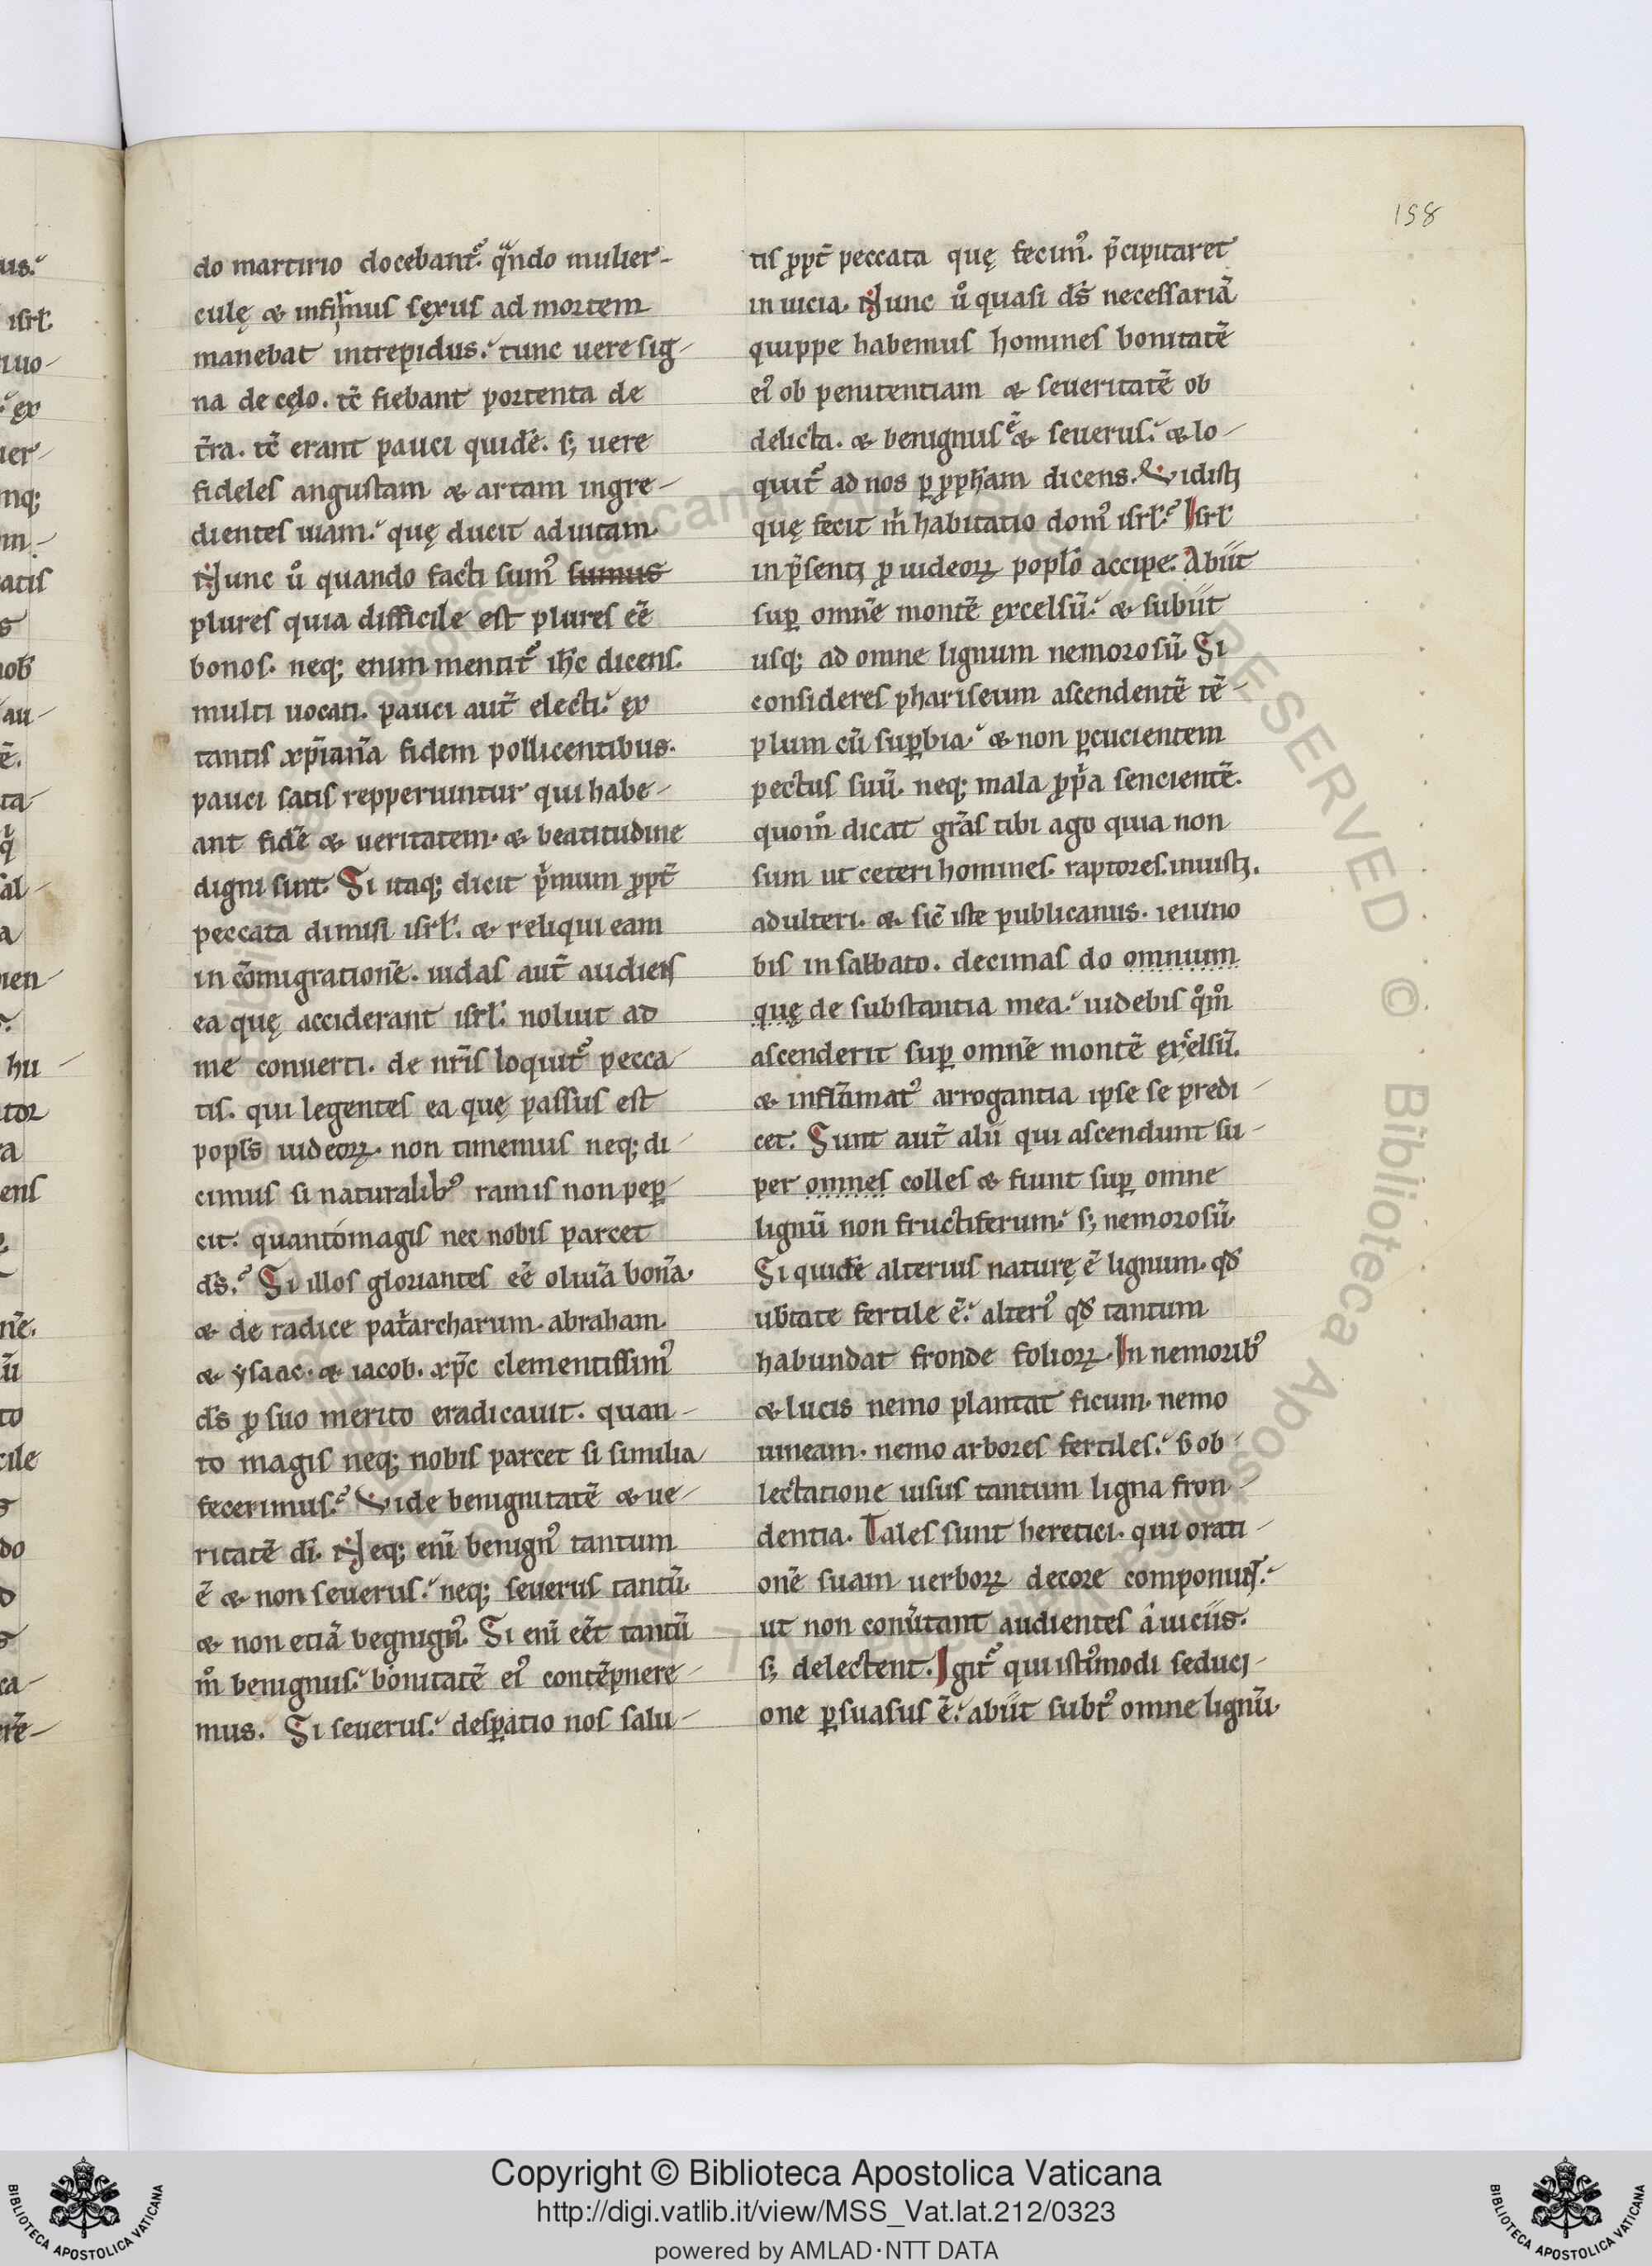 158
do martirio docebant᷑. qͣndo mulier-
culę & infirmus sęxus ad mortem
manebat intrepidus. tunc uere sig-
na de cęlo. tc̄ fiebant portenta de
t̄ra. tc̄ erant pauci quidē. s; uere
fideles angustam & artam ingre-
dientes uiam. quę ducit ad uitam.
Nunc uͦ quando facti sumꝰ sumus
plures quia difficile est plures eē
bonos. neq; enim mentit᷑ ih̄c dicens.
multi uocati. pauci aut̄ electi. ęx
tantis xp̄ianā fidem pollicentibus.
pauci satis repperiuntur qui habe-
ant fidē & ueritatem. & beatitudine
digni sint. Si itaq; dicit pͥmum ꝓpt̄
peccata dimisi isrl̄. & reliqui eam
in cōmigrationē. iudas aut̄ audiens
ea quę acciderant isrl̄. noluit ad
me conuerti. de nr̄is loquit᷑ pecca-
tis. qui legentes ea quę passus est
popl̄s iudeoꝝ. non timemus neq; di-
cimus si naturalibꝰ ramis non peꝑ-
cit. quantómagis nec nobis parcet
ds̄. Si illos gloriantes eē oliuā bonā.
& de radice pat͛archarum. abraham.
& ysaac. & iacob. xp̄c clementissimꝰ
ds̄ ꝓ suo merito eradicauit. quan-
to magis neq; nobis parcet si similia
fecerimus. Vide benignitatē & ue-
ritatē dī. Neq; enī benignꝰ tantum
ē & non seuerus. neq; seuerus tantū.
& non etiā begnignꝰ. Si enī eēt tantū
mͦ benignus. bonitatē eiꝰ contēpnere-
mus. Si seuerus. desꝑatio nos salu-
tis ꝓpt̄ peccata quę fecimꝰ. p̄cipitaret
in uicia. Nunc uͦ quasi ds̄ necessariā
quippe habemus homines bonitatē
eiꝰ ob penitentiam & seueritatē ob
delicta. & benignus ē & seuerus. & lo-
quit᷑ ad nos ꝑ ꝓph̄am dicens. Vidisti
quę fecit m͛ habitatio domꝰ isrl̄. Isrl̄
in p̄senti ꝓ iudeoꝝ poplō accipe. Abiit
suꝑ omnē montē ęxcelsū. & subiit
usq; ad omne lignum nemorosū. Si
consideres phariseum ascendentē tē-
plum cū suꝑbia. & non ꝑcucientem
pectus suū. neq; mala ꝓpͥa sencientē.
quom̊ dicat gr̄as tibi ago quia non
sum ut ceteri homines. raptores. iniusti.
adulteri. & sic̄ iste publicanus. ieiuno
bis in sabbato. decimas do omnium
quę de substantia mea. uidebis qͦmͦ
ascenderit suꝑ omnē montē ęxcelsū.
& inflāmatꝰ arrogantia ipse se predi-
cet. Sunt aut̄ alii qui ascendunt su-
per omnes colles & fiunt suꝑ omne
lignū non fructiferum. s; nemorosū.
Si quidē alterius naturę ē lignum. qd̄
ub̄tate fertile ē. alteriꝰ qd̄ tantum
habundat fronde folioꝝ. In nemoribꝰ
& lucis nemo plantat ficum. nemo
uineam. nemo arbores fertiles. s; ob-
lectatione uisus tantum ligna fron-
dentia. Tales sunt heretici. qui orati-
onē suam uerboꝝ decore componunt.
ut non conūtant audientes a uiciis.
s; delectent. Igit᷑ qui istiꝰmodi seduci-
one ꝑsuasus ē. abiit subt̄ omne lignū.
Copyright © Biblioteca Apostolica Vaticana
http://digi.vatlib.it/view/MSS_Vat.lat.212/0323
powered by AMLAD·NTT DATA
BIBLIOTECA APOSTOLICA VATICANA
BIBLIOTECA APOSTOLICA VATICANA